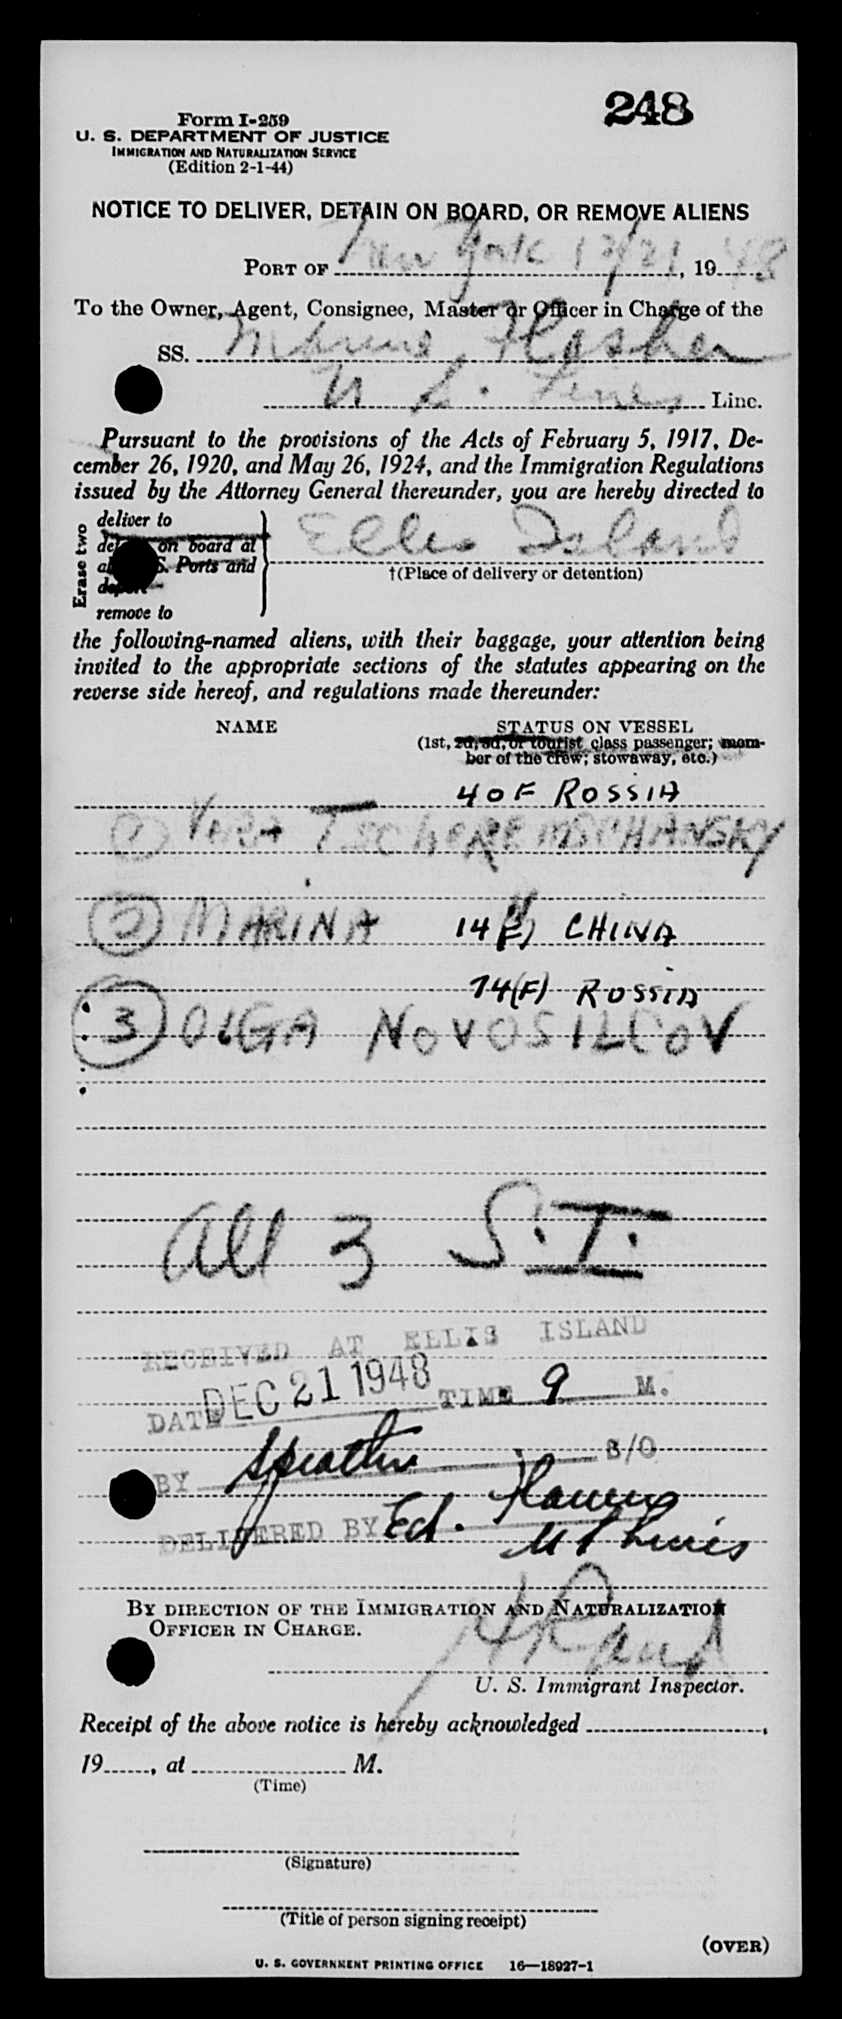 248
Form I-259
U. S. DEPARTMENT OF JUSTICE
IMMIGRATION AND NATURALIZATION SERVICE
(Edition 2-1-44)
NOTICE TO DELIVER, DETAIN ON BOARD, OR REMOVE ALIENS
PORT OF New York 12/21, 1948
To the Owner, Agent, Consignee, Master or Officer in Charge of the
SS. Marine Flasher
U. S. Lines Line.
Pursuant to the provisions of the Acts of February 5, 1917, De-
cember 26, 1920, and May 26, 1924, and the Immigration Regulations
issued by the Attorney General thereunder, you are hereby directed to
Erase two
deliver to
on board at
S. Ports and
deport
remove to
Ellis Island
†(Place of delivery or detention)
the following-named aliens, with their baggage, your attention being
invited to the appropriate sections of the statutes appearing on the
reverse side hereof, and regulations made thereunder:
NAME STATUS ON VESSEL
(1st, 2d, 3d, or tourist class passenger; mem-
ber of the crew; stowaway, etc.)
40F ROSSIA
(1) VARA TSCHEREMSCHANSKY
(2) MARINA 14(F) CHINA
74(F) ROSSIA
(3) OLGA NOVOSILCOV
All 3 S.I.
RECEIVED AT ELLIS ISLAND
DATE DEC 21 1948 TIME 9 M.
BY S/O
DELIVERED BY Ed.
BY DIRECTION OF THE IMMIGRATION AND NATURALIZATION
OFFICER IN CHARGE.
U. S. Immigrant Inspector.
Receipt of the above notice is hereby acknowledged
19, at M.
(Time)
(Signature)
(Title of person signing receipt)
(OVER)
U. S. GOVERNMENT PRINTING OFFICE 16—18927-1